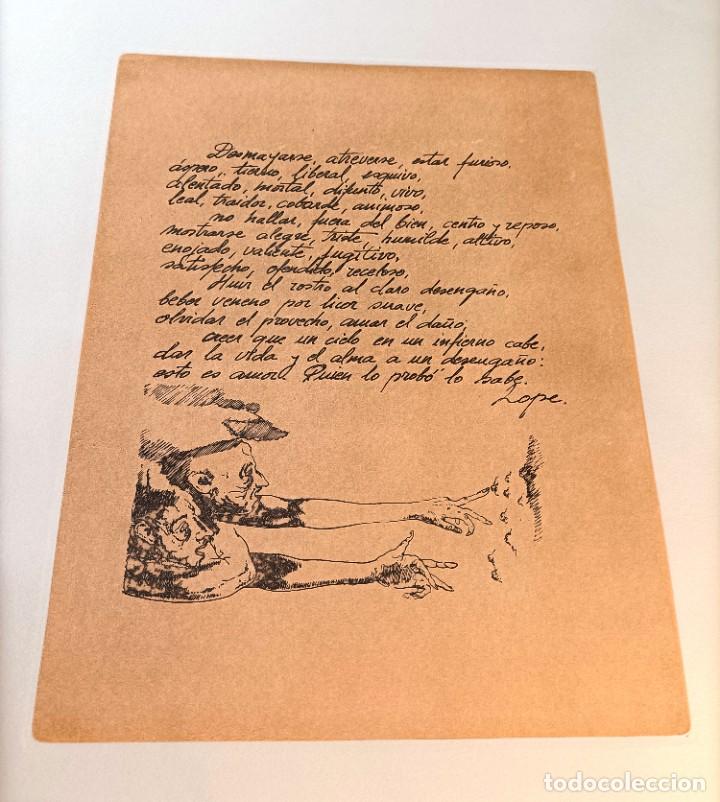 Desmayarse, atreverse, estar furioso,
áspero, tierno, liberal, esquivo,
alentado, mortal, difunto, vivo,
leal, traidor, cobarde, animoso,
no hallar, fuera del bien, centro y reposo,
mostrarse alegre, triste, humilde, altivo,
enojado, valiente, fugitivo,
satisfecho, ofendido, receloso,
Huir el rostro al claro desengaño,
beber veneno por licor suave,
olvidar el provecho, amar el daño;
creer que un cielo en un infierno cabe,
dar la vida y el alma a un desengaño:
esto es amor. Quien lo probó lo sabe.
Lope.
todocoleccion
todocoleccion